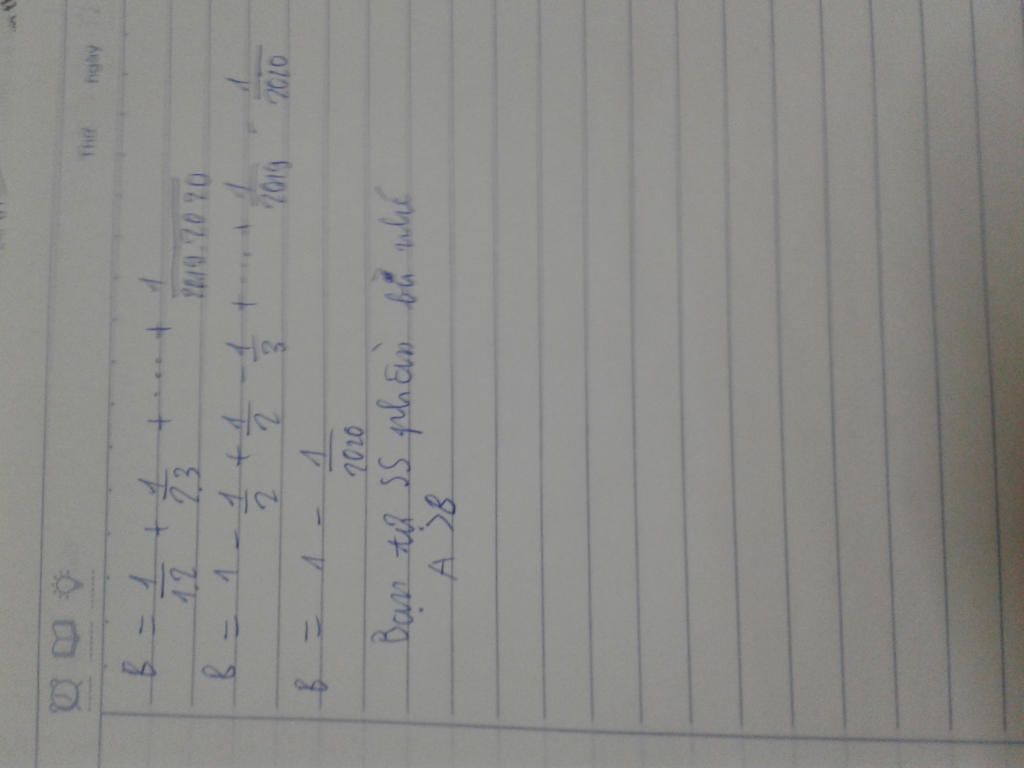 Thứ Ngày
B = 1/1.2 + 1/2.3 + .... + 1/2019.2020
B = 1 - 1/2 + 1/2 - 1/3 + .... + 1/2019 - 1/2020
B = 1 - 1/2020
Bạn tự SS phần bù nhé
A > B